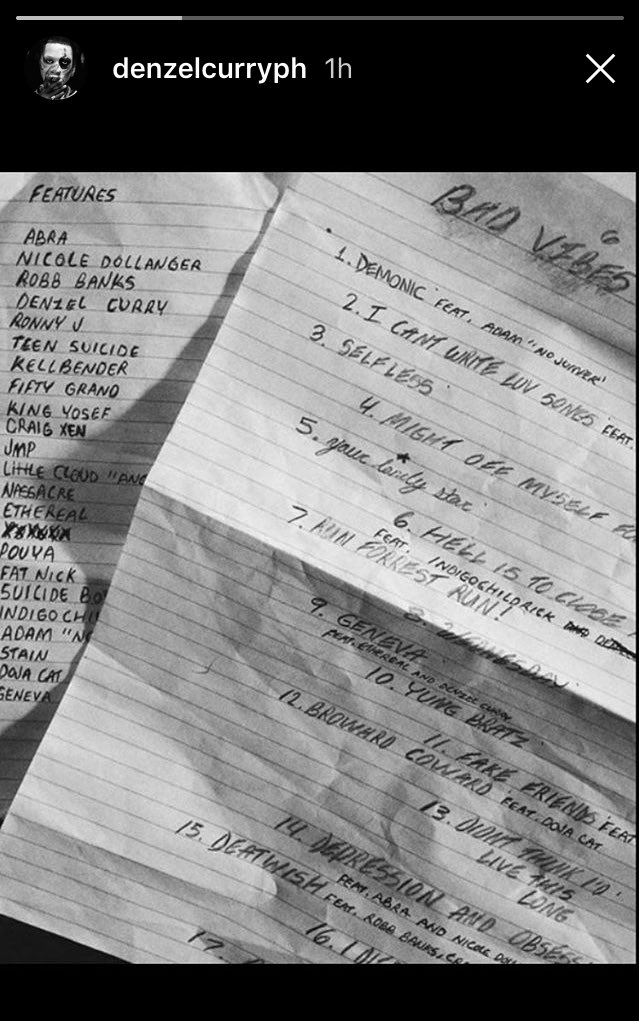 denzelcurryph 1h
FEATURES
ABRA
NICOLE DOLLANGER
ROBB BANKS
DENZEL CURRY
RONNY J
TEEN SUICIDE
KELLBENDER
FIFTY GRAND
KING YOSEF
CRAIG XEN
JMP
LITTLE CLOUD "ANG
NAESACRE
ETHEREAL
POUYA
FAT NICK
SUICIDE BO
INDIGO CHI
ADAM "NO
STAIN
DOJA CAT
GENEVA
BAD VIBES
6
1. DEMONIC FEAT. ADAM "NO JUMPER"
2. I CANT WRITE LUV SONGS FEAT.
3. SELFLESS
4. MIGHT OFF MYSELF
5. your lonely star
6. HELL IS TO CLODE
FEAT. INDIGOCHILDRICK
7. RUN FORREST RUN!
8. WEDNESDAY
9. GENEVA
FEAT. ETHEREAL AND DENZEL CURRY
10. YUNG BRATZ
11. FAKE FRIENDS FEAT
12. BROWARD COWARD FEAT. DOJA CAT
13. DIDNT THINK I'D
LIVE THIS
LONG
14. DEPRESSION AND OBSESS
FEAT. ABRA AND NICOLE DOLL
15. DEATWISH FEAT. ROBB BANKS, CRA
16. I
17.